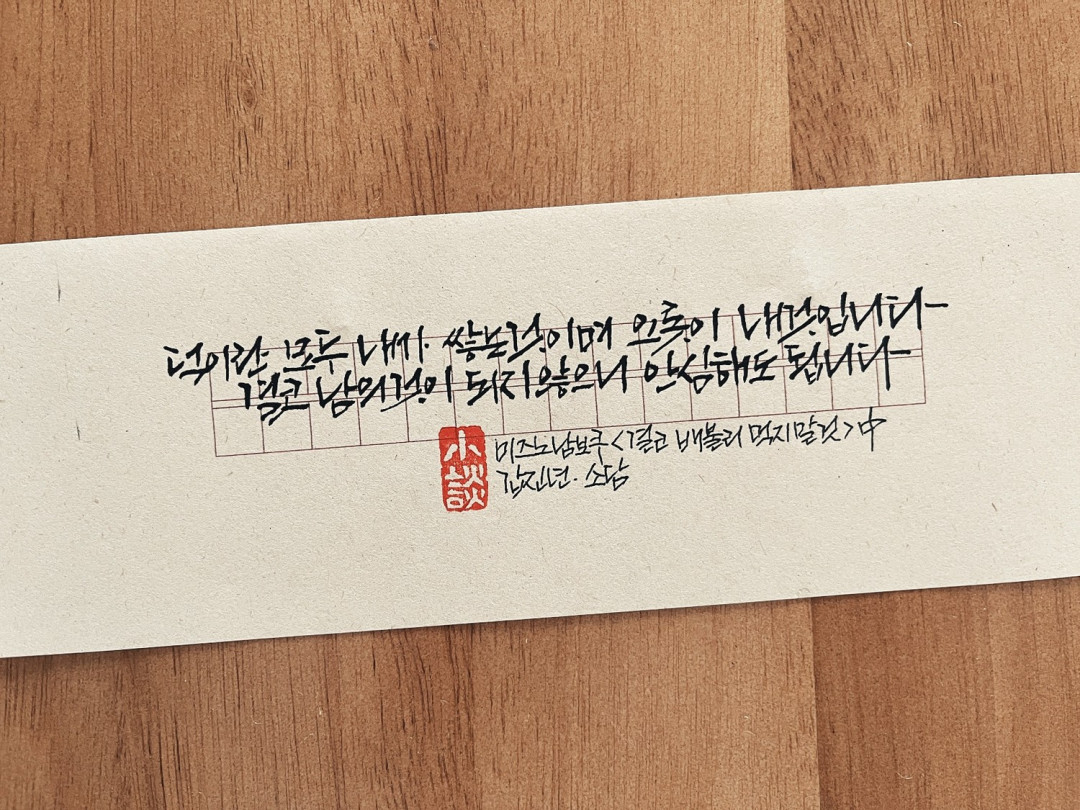 덕이란 모두 내가 쌓는것이며 오롯이 내것입니다
결코 남의것이 되지않으니 안심해도 됩니다
小談
미즈노남보쿠 <결코 배불리 먹지말것> 中
갑진년. 소담